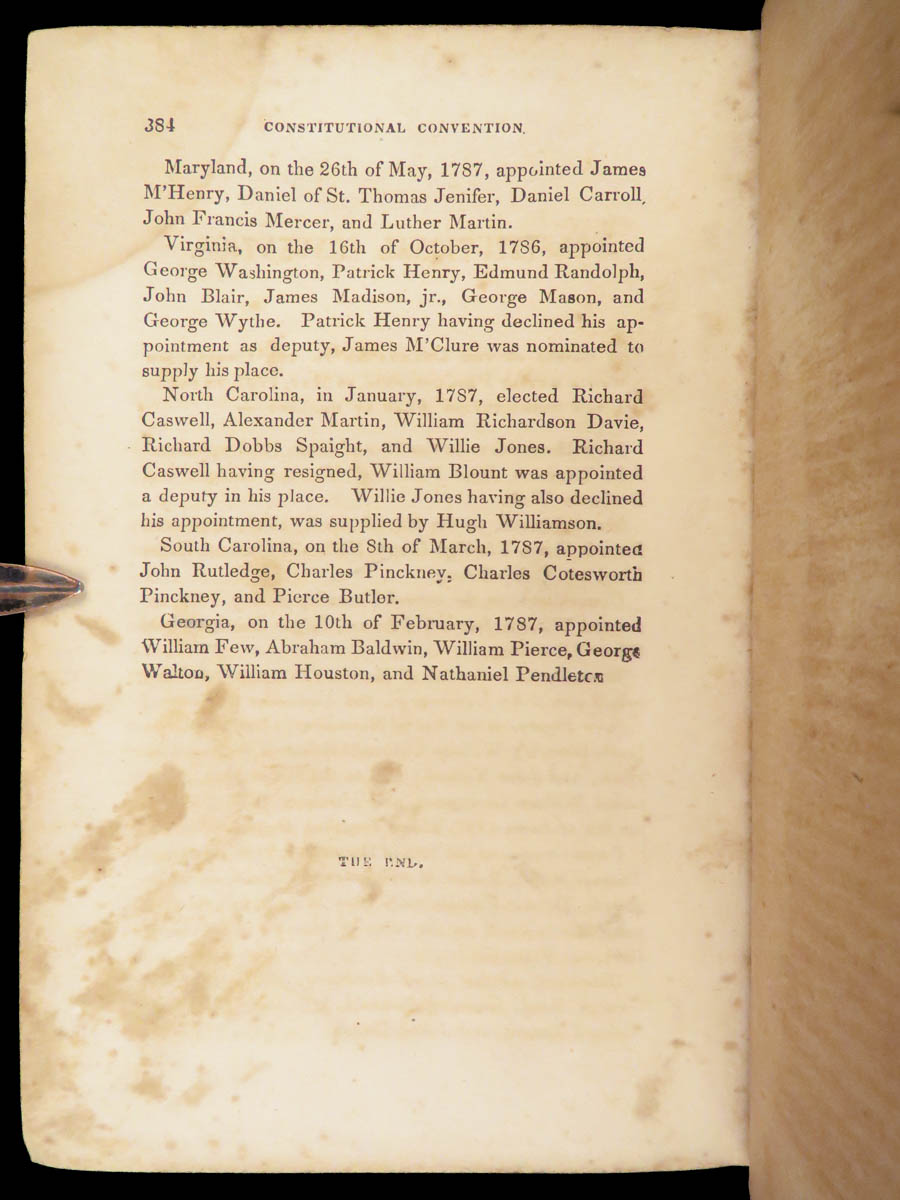 384 CONSTITUTIONAL CONVENTION.
Maryland, on the 26th of May, 1787, appointed James
M'Henry, Daniel of St. Thomas Jenifer, Daniel Carroll,
John Francis Mercer, and Luther Martin.
Virginia, on the 16th of October, 1786, appointed
George Washington, Patrick Henry, Edmund Randolph,
John Blair, James Madison, jr., George Mason, and
George Wythe. Patrick Henry having declined his ap-
pointment as deputy, James M'Clure was nominated to
supply his place.
North Carolina, in January, 1787, elected Richard
Caswell, Alexander Martin, William Richardson Davie,
Richard Dobbs Spaight, and Willie Jones. Richard
Caswell having resigned, William Blount was appointed
a deputy in his place. Willie Jones having also declined
his appointment, was supplied by Hugh Williamson.
South Carolina, on the 8th of March, 1787, appointed
John Rutledge, Charles Pinckney, Charles Cotesworth
Pinckney, and Pierce Butler.
Georgia, on the 10th of February, 1787, appointed
William Few, Abraham Baldwin, William Pierce, George
Walton, William Houston, and Nathaniel Pendleton
THE END.